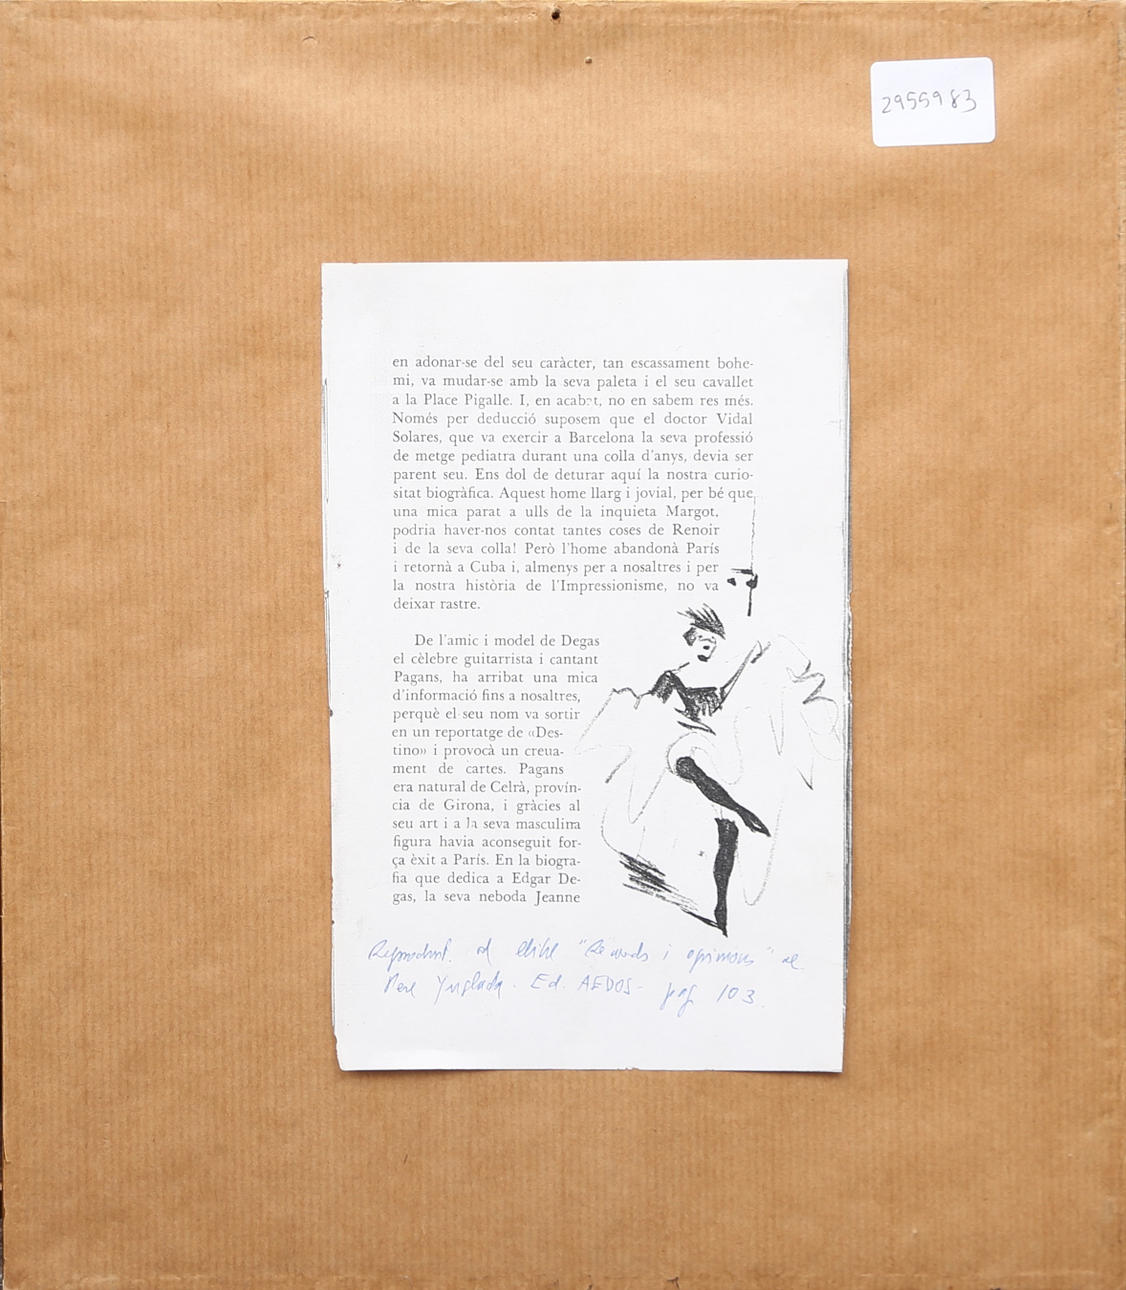 2955983
en adonar-se del seu caràcter, tan escassament bohe-
mi, va mudar-se amb la seva paleta i el seu cavallet
a la Place Pigalle. I, en acabat, no en sabem res més.
Només per deducció suposem que el doctor Vidal
Solares, que va exercir a Barcelona la seva professió
de metge pediatra durant una colla d'anys, devia ser
parent seu. Ens dol de deturar aquí la nostra curio-
sitat biogràfica. Aquest home llarg i jovial, per bé que
una mica parat a ulls de la inquieta Margot,
podria haver-nos contat tantes coses de Renoir
i de la seva colla! Però l'home abandonà París
i retornà a Cuba i, almenys per a nosaltres i per
la nostra història de l'Impressionisme, no va
deixar rastre.
De l'amic i model de Degas
el cèlebre guitarrista i cantant
Pagans, ha arribat una mica
d'informació fins a nosaltres,
perquè el seu nom va sortir
en un reportatge de «Des-
tino» i provocà un creua-
ment de cartes. Pagans
era natural de Celrà, provín-
cia de Girona, i gràcies al
seu art i a la seva masculina
figura havia aconseguit for-
ça èxit a París. En la biogra-
fia que dedica a Edgar De-
gas, la seva neboda Jeanne
"Records i opinions" de
Pere Ynglada. Ed. AEDOS- pag 103.